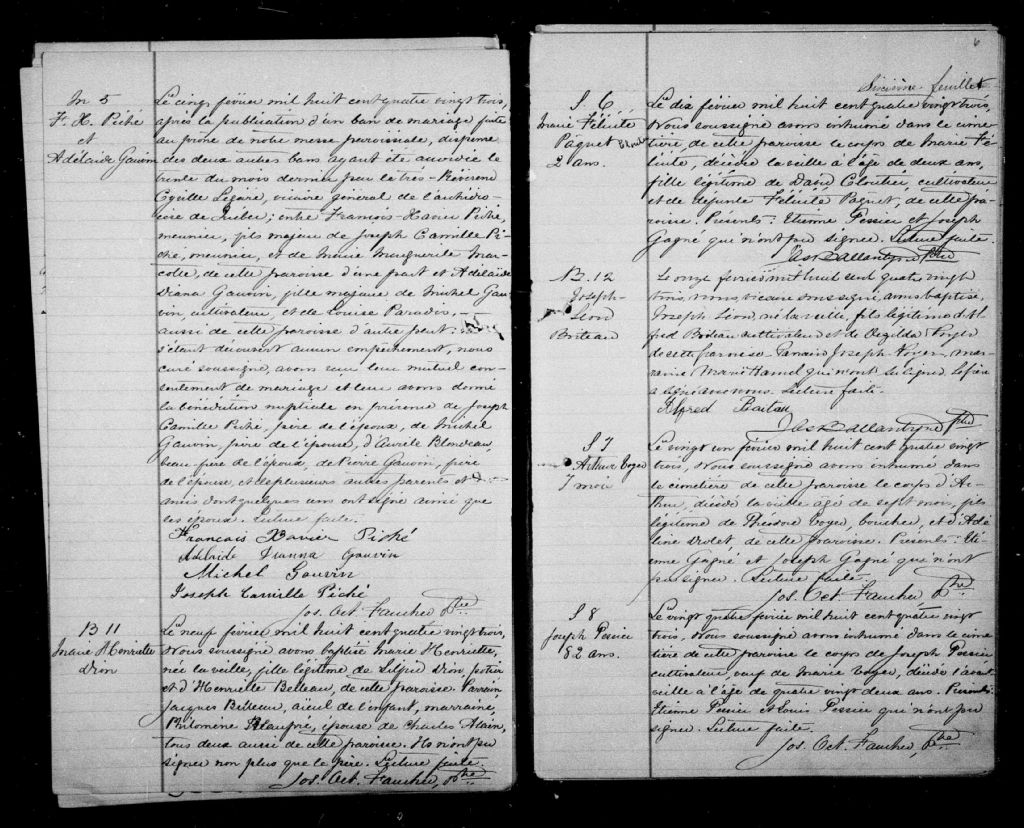 M 5
F. X. Piché
et
Adélaïde Gauvin
Le cinq février mil huit cent quatre vingt trois,
après la publication d'un ban de mariage faite
au prône de notre messe paroissiale, dispense
des deux autres bans ayant été accordée le
trente du mois dernier par le très-Révérend
Cyrille Légaré, vicaire général de l'archidio-
cèse de Québec; entre François-Xavier Piché,
meunier, fils majeur de Joseph Camille Pi-
ché, meunier, et de Marie Marguerite Mar-
cotte, de cette paroisse d'une part et Adélaïde
Diana Gauvin, fille majeure de Michel Gau-
vin cultivateur, et de Louise Paradis,
aussi de cette paroisse d'autre part; ne
s'étant découvert aucun empêchement, nous
curé soussigné, avons reçu leur mutuel con-
sentement de mariage et leur avons donné
la bénédiction nuptiale en présence de Joseph
Camille Piché, père de l'époux, de Michel
Gauvin, père de l'épouse, d'Aurèle Blondeau,
beau père de l'époux, de Pierre Gauvin, frère
de l'épouse, et de plusieurs autres parents et
amis dont quelques uns ont signé ainsi que
les époux. Lecture faite.
Francois Xavier Piché
Adélaide Dianna Gauvin
Michel Gauvin
Joseph Camille Piché
Jos. Oct. Faucher Ptre
B 11
Marie Henriette
Dion
Le neuf février mil huit cent quatre vingt trois,
Nous soussigné avons baptisé Marie Henriette,
née la veille, fille légitime de Elzéar Dion,
et d'Henriette Belleau, de cette paroisse. Parrain
Jacques Belleau, aïeul de l'enfant, marraine,
Philomène Beaupré, épouse de Charles Alain,
tous deux aussi de cette paroisse. Ils n'ont pu
signer non plus que le père. Lecture faite.
Jos. Oct. Faucher, Ptre
6
Sixième feuillet
S. 6
Marie Félicité
Paquet Clout
2 ans.
Le dix février mil huit cent quatre vingt trois,
Nous soussigné avons inhumé dans le cime-
tière, de cette paroisse le corps de Marie Fé-
licité, décédée la veille à l'âge de deux ans,
fille légitime de David Cloutier, cultivateur
et de défunte Félicité Paquet, de cette pa-
roisse. Présents: Etienne Pessier et Joseph
Gagné qui n'ont pu signer. Lecture faite.
Jas Ballantyne Ptre
B. 12
Joseph-
Léon
Boiteau
Le onze février mil huit cent quatre vingt
trois, nous, vicaire soussigné, avons baptisé,
Joseph Léon, né la veille, fils légitime d'Al-
fred Boiteau cultivateur et de Exzilda Voyer
de cette paroisse. Parrain Joseph Voyer, mar-
raine Marie Hamel qui n'ont su signer. Le père
a signé avec nous. Lecture faite.
Alfred Boitau
Jas Ballantyne Ptre
S 7
Arthur Voyer
7 mois
Le vingt un février mil huit cent quatre vingt
trois, Nous soussigné avons inhumé dans
le cimetière de cette paroisse le corps d'Ar-
thur, décédé la veille âgé de sept mois, fils
légitime de Théodore Voyer, boucher, et d'Adé-
line Drolet de cette paroisse. Présents: Eti-
enne Gagné et Joseph Gagné qui n'ont
pu signer. Lecture faite.
Jos. Oct. Faucher Ptre
S 8
Joseph Pessier
82 ans.
Le vingt quatre février mil huit cent quatre vingt
trois, Nous soussigné avons inhumé dans le cime-
tière de cette paroisse le corps de Joseph Pessier
cultivateur, veuf de Marie Voyer, décédé l'avant
veille à l'âge de quatre vingt deux ans. Présents:
Etienne Pessier et Louis Pessier qui n'ont pu
signer. Lecture faite.
Jos. Oct. Faucher Ptre